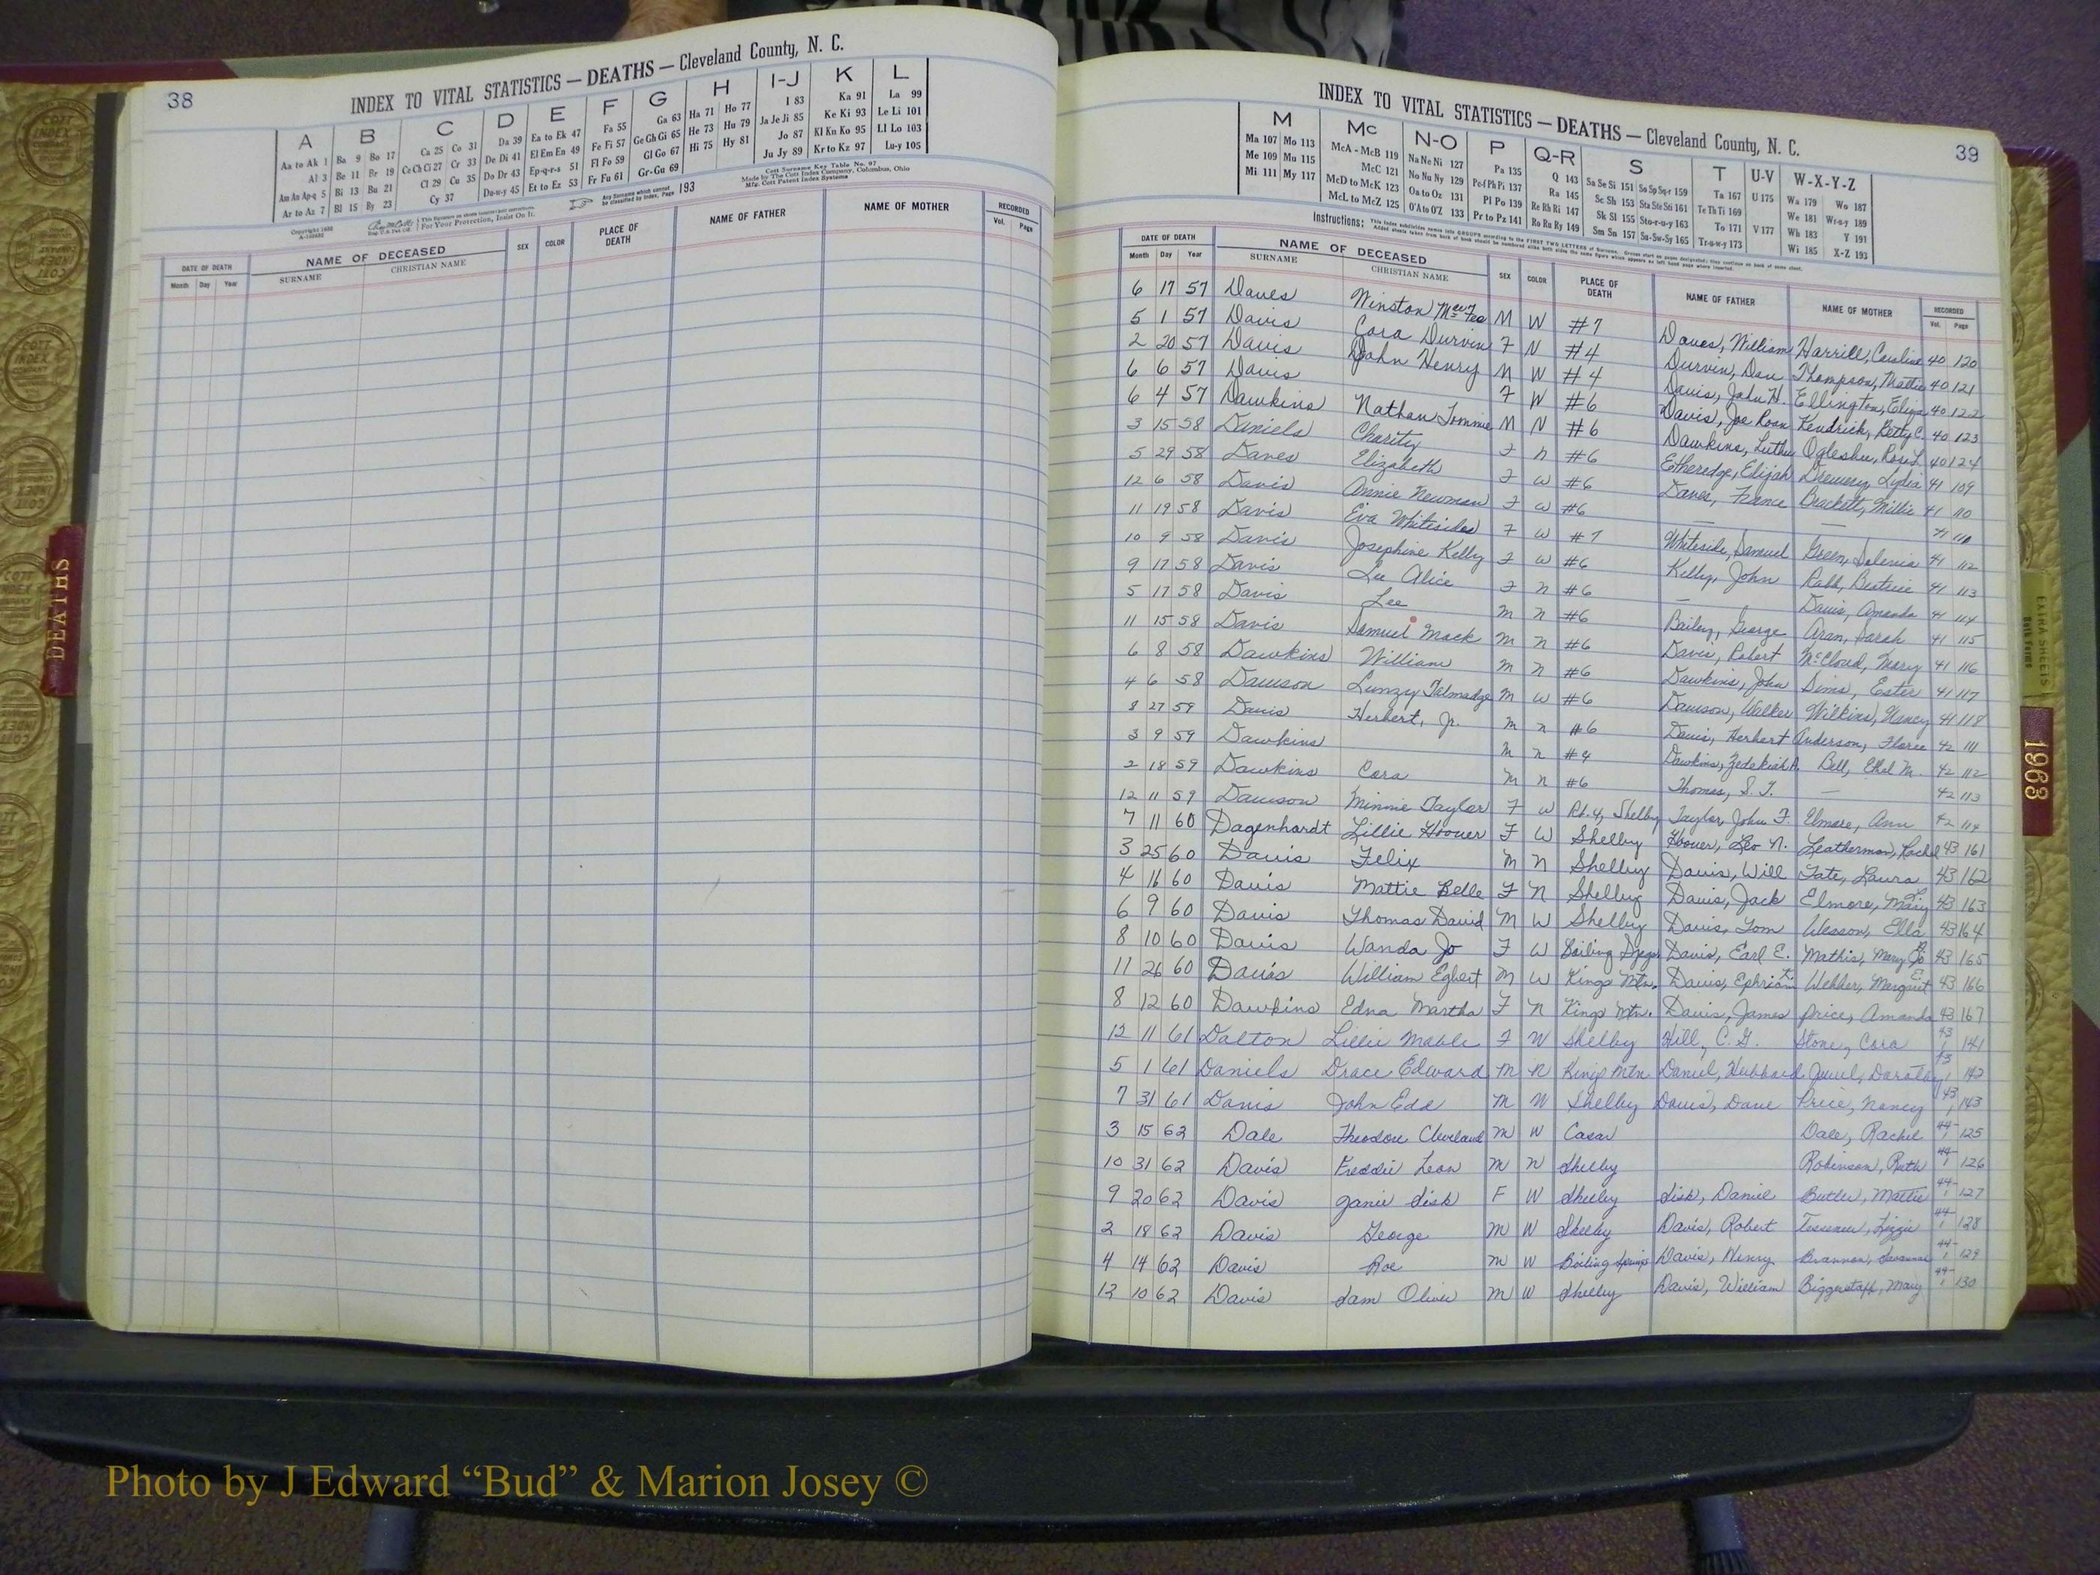 38
INDEX TO VITAL STATISTICS — DEATHS — Cleveland County, N. C.
A B C D E F G H I-J K L
Aa to Ak 1 Ba 9 Bo 17 Ca 25 Co 31 Da 39 Ea to Ek 47 Fa 55 Ga 63 Ha 71 Ho 77 I 83 Ka 91 La 99
Al 3 Be 11 Br 19 Ce Ch Ci 27 Cr 33 De Di 41 El Em En 49 Fe Fi 57 Ge Gh Gi 65 He 73 Hu 79 Ja Je Ji 85 Ke Ki 93 Le Li 101
Am An Ap-q 5 Bi 13 Bu 21 Cl 29 Cu 35 Do Dr 43 Ep-q-r-s 51 Fl Fo 59 Gl Go 67 Hi 75 Hy 81 Jo 87 Kl Kn Ko 95 Ll Lo 103
Ar to Az 7 Bl 15 By 23 Cy 37 Du-w-y 45 Et to Ez 53 Fr Fu 61 Gr-Gu 69 Ju Jy 89 Kr to Kz 97 Lu-y 105
For Your Protection, Insist On It.
Any Surname which cannot be classified by Index, Page 193
Cott Surname Key Table No. 97
Made by The Cott Index Company, Columbus, Ohio
Mfg. Cott Patent Index Systems
DATE OF DEATH NAME OF DECEASED SEX COLOR PLACE OF DEATH NAME OF FATHER NAME OF MOTHER RECORDED
Month Day Year SURNAME CHRISTIAN NAME Vol. Page
DEATHS
INDEX TO VITAL STATISTICS — DEATHS — Cleveland County, N. C.
39
M Mc N-O P Q-R S T U-V W-X-Y-Z
Ma 107 Mo 113 McA - McB 119 Na Ne Ni 127 Pa 135 Q 143 Sa Se Si 151 So Sp Sq-r 159 Ta 167 U 175 Wa 179 Wo 187
Me 109 Mu 115 McC 121 No Nu Ny 129 Pe-f Ph Pi 137 Ra 145 Sc Sh 153 Sta Ste Sti 161 Te Th Ti 169 We 181 Wr-s-y 189
Mi 111 My 117 McD to McK 123 Oa to Oz 131 Pl Po 139 Re Rh Ri 147 Sk Sl 155 Sto-r-u-y 163 To 171 V 177 Wh 183 Y 191
McL to McZ 125 O'A to O'Z 133 Pr to Pz 141 Ro Ru Ry 149 Sm Sn 157 Su-Sw-Sy 165 Tr-u-w-y 173 Wi 185 X-Z 193
Instructions:
DATE OF DEATH NAME OF DECEASED SEX COLOR PLACE OF DEATH NAME OF FATHER NAME OF MOTHER RECORDED
Month Day Year SURNAME CHRISTIAN NAME Vol. Page
6 17 57 Daves Winston M W #7 Daves, William Harrill, Caroline 40 120
5 1 57 Davis Cora Durvin F N #4 Durvin, Dan Thompson, Mattie 40 121
2 20 57 Davis John Henry M W #4 Davis, John H. Ellington, Eliza 40 122
6 6 57 Davis F W #6 Davis, Joe Ross Kendrick, Betty C. 40 123
6 4 57 Dawkins Nathan Tommie M N #6 Dawkins, Luther Oglesbee, Rosi L. 40 124
3 15 58 Daniels Charity F n #6 Etheredge, Elijah Drewery, Lydia 41 109
5 29 58 Daves Elizabeth F W #6 Daves, France Brackett, Millie 41 110
12 6 58 Davis Annie Newman F W #6 — — 41 111
11 19 58 Davis Eva Whitesides F W #7 Whiteside, Samuel Green, 41 112
10 9 58 Davis Josephine Kelly F W #6 Kelly, John Rabb, Beatrice 41 113
9 17 58 Davis Lee Alice F n #6 — Davis, Amanda 41 114
5 17 58 Davis Lee M n #6 Bailey, George Aran, Sarah 41 115
11 15 58 Davis Samuel Mack M n #6 Davis, Robert McCloud, Mary 41 116
6 8 58 Dawkins William M n #6 Dawkins, John Sims, Ester 41 117
4 6 58 Dawson Lunzy Talmadge M W #6 Dawson, Walker Wilkins, Nancy 41 118
8 27 59 Davis Herbert, Jr. M n #6 Davis, Herbert Anderson, Floree 42 111
3 9 59 Dawkins M n #4 Dawkins, Zedekiah A. Bell, Ethel M. 42 112
2 18 59 Dawkins Cora M n #6 Thomas, S. T. — 42 113
12 11 59 Dawson Minnie Taylor F W Rt. 4, Shelby Taylor, John F. Elmore, Ann 42 114
7 11 60 Dagenhardt Lillie Hoover F W Shelby Hoover, Leo N. Leatherman, Rachel 43 161
3 25 60 Davis Felix M N Shelby Davis, Will Tate, Laura 43 162
4 16 60 Davis Mattie Belle F N Shelby Davis, Jack Elmore, Mary L 43 163
6 9 60 Davis Thomas David M W Shelby Davis, Tom Wesson, Ella 43 164
8 10 60 Davis Wanda Jo F W Boiling Spgs. Davis, Earl E. Mathis, Mary Jo 43 165
11 26 60 Davis William Egbert M W Kings Mtn. Davis, Ephriam Webber, Margaret E. 43 166
8 12 60 Dawkins Edna Martha F N Kings Mtn. Davis, James Price, Amanda 43 167
12 11 61 Dalton Lillie Mable F W Shelby Hill, C. G. Stone, Cora 43 141
5 1 61 Daniels Drace Edward M N Kings Mtn. Daniel, Hubbard Juuel, Dorothy 43 142
7 31 61 Davis John Ede M W Shelby Davis, Dave Price, Nancy 43 143
3 15 62 Dale Theodore Cleveland M W Casar Dale, Rachel 44 125
10 31 62 Davis Freddie Leon M N Shelby Robinson, Ruth 44 126
9 20 62 Davis Janie Sisk F W Shelby Sisk, Daniel Butler, Mattie 44 127
2 18 62 Davis George M W Shelby Davis, Robert Tesseneer, Lizzie 44 128
4 14 62 Davis Roe M W Boiling Springs Davis, Henry Brannon, Savannah 44 129
12 10 62 Davis Sam Oliver M W Shelby Davis, William Biggerstaff, Mary 44 130
EXTRA SHEETS
1963
Photo by J Edward “Bud” & Marion Josey ©